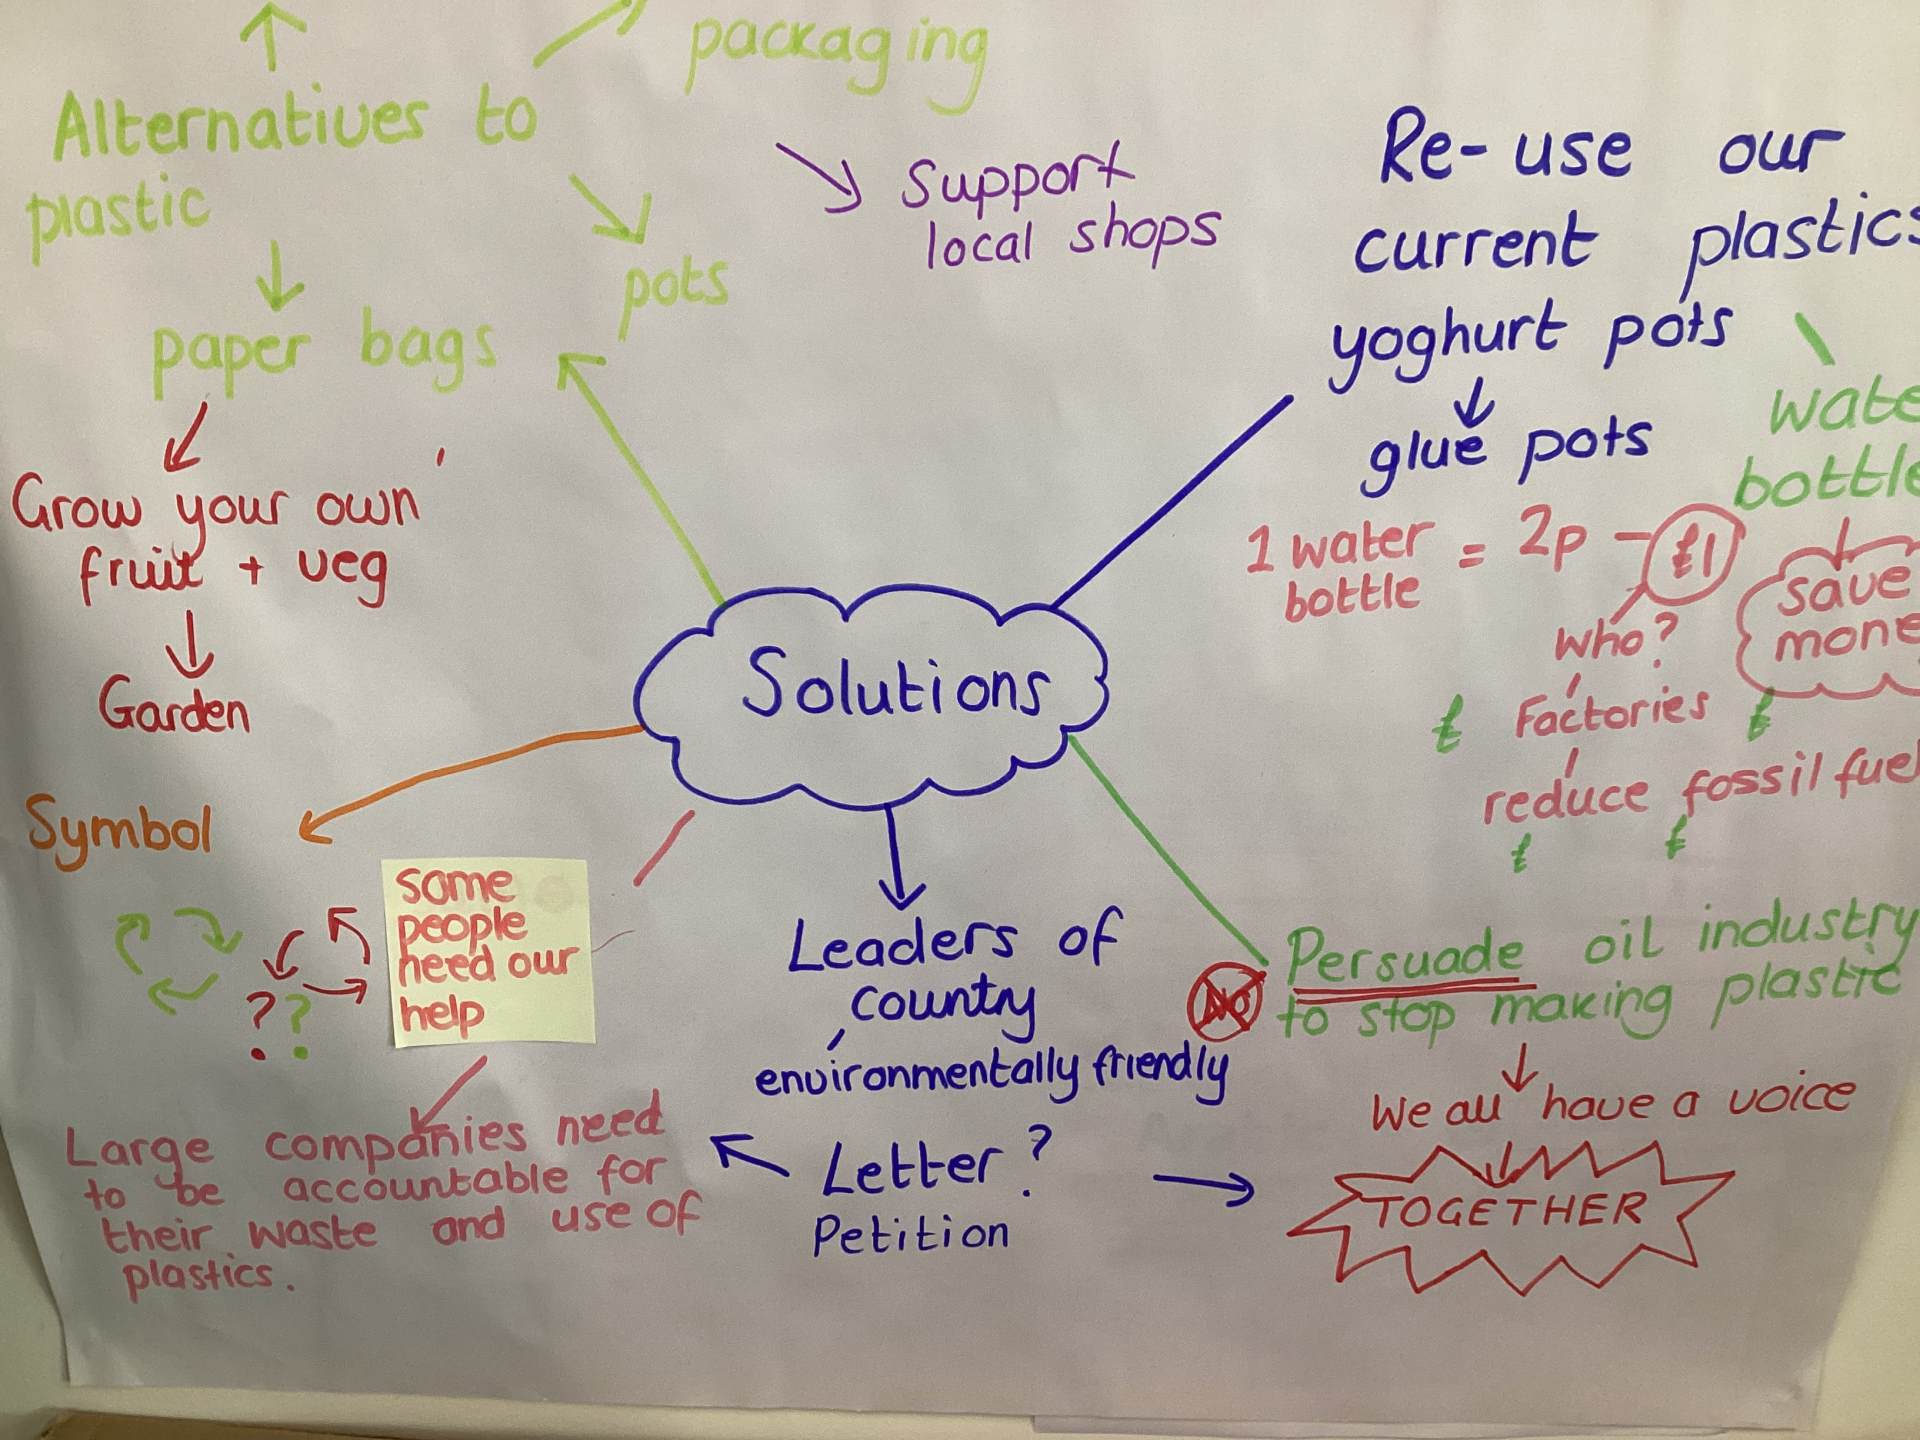 packaging
Alternatives to
plastic
pots
paper bags
Grow your own
fruit + veg
Garden
Support
local shops
Re-use our
current plastics
yoghurt pots
glue pots
wate
bottle
1 water
bottle
= 2p - £1
save
mone
who?
£ Factories £
reduce fossil fuel
£ £
Solutions
Symbol
? ?
Some
people
need our
help
Large companies need
to be accountable for
their waste and use of
plastics.
Leaders of
country
environmentally friendly
Letter?
Petition
NO
Persuade oil industry
to stop making plastic
We all have a voice
TOGETHER